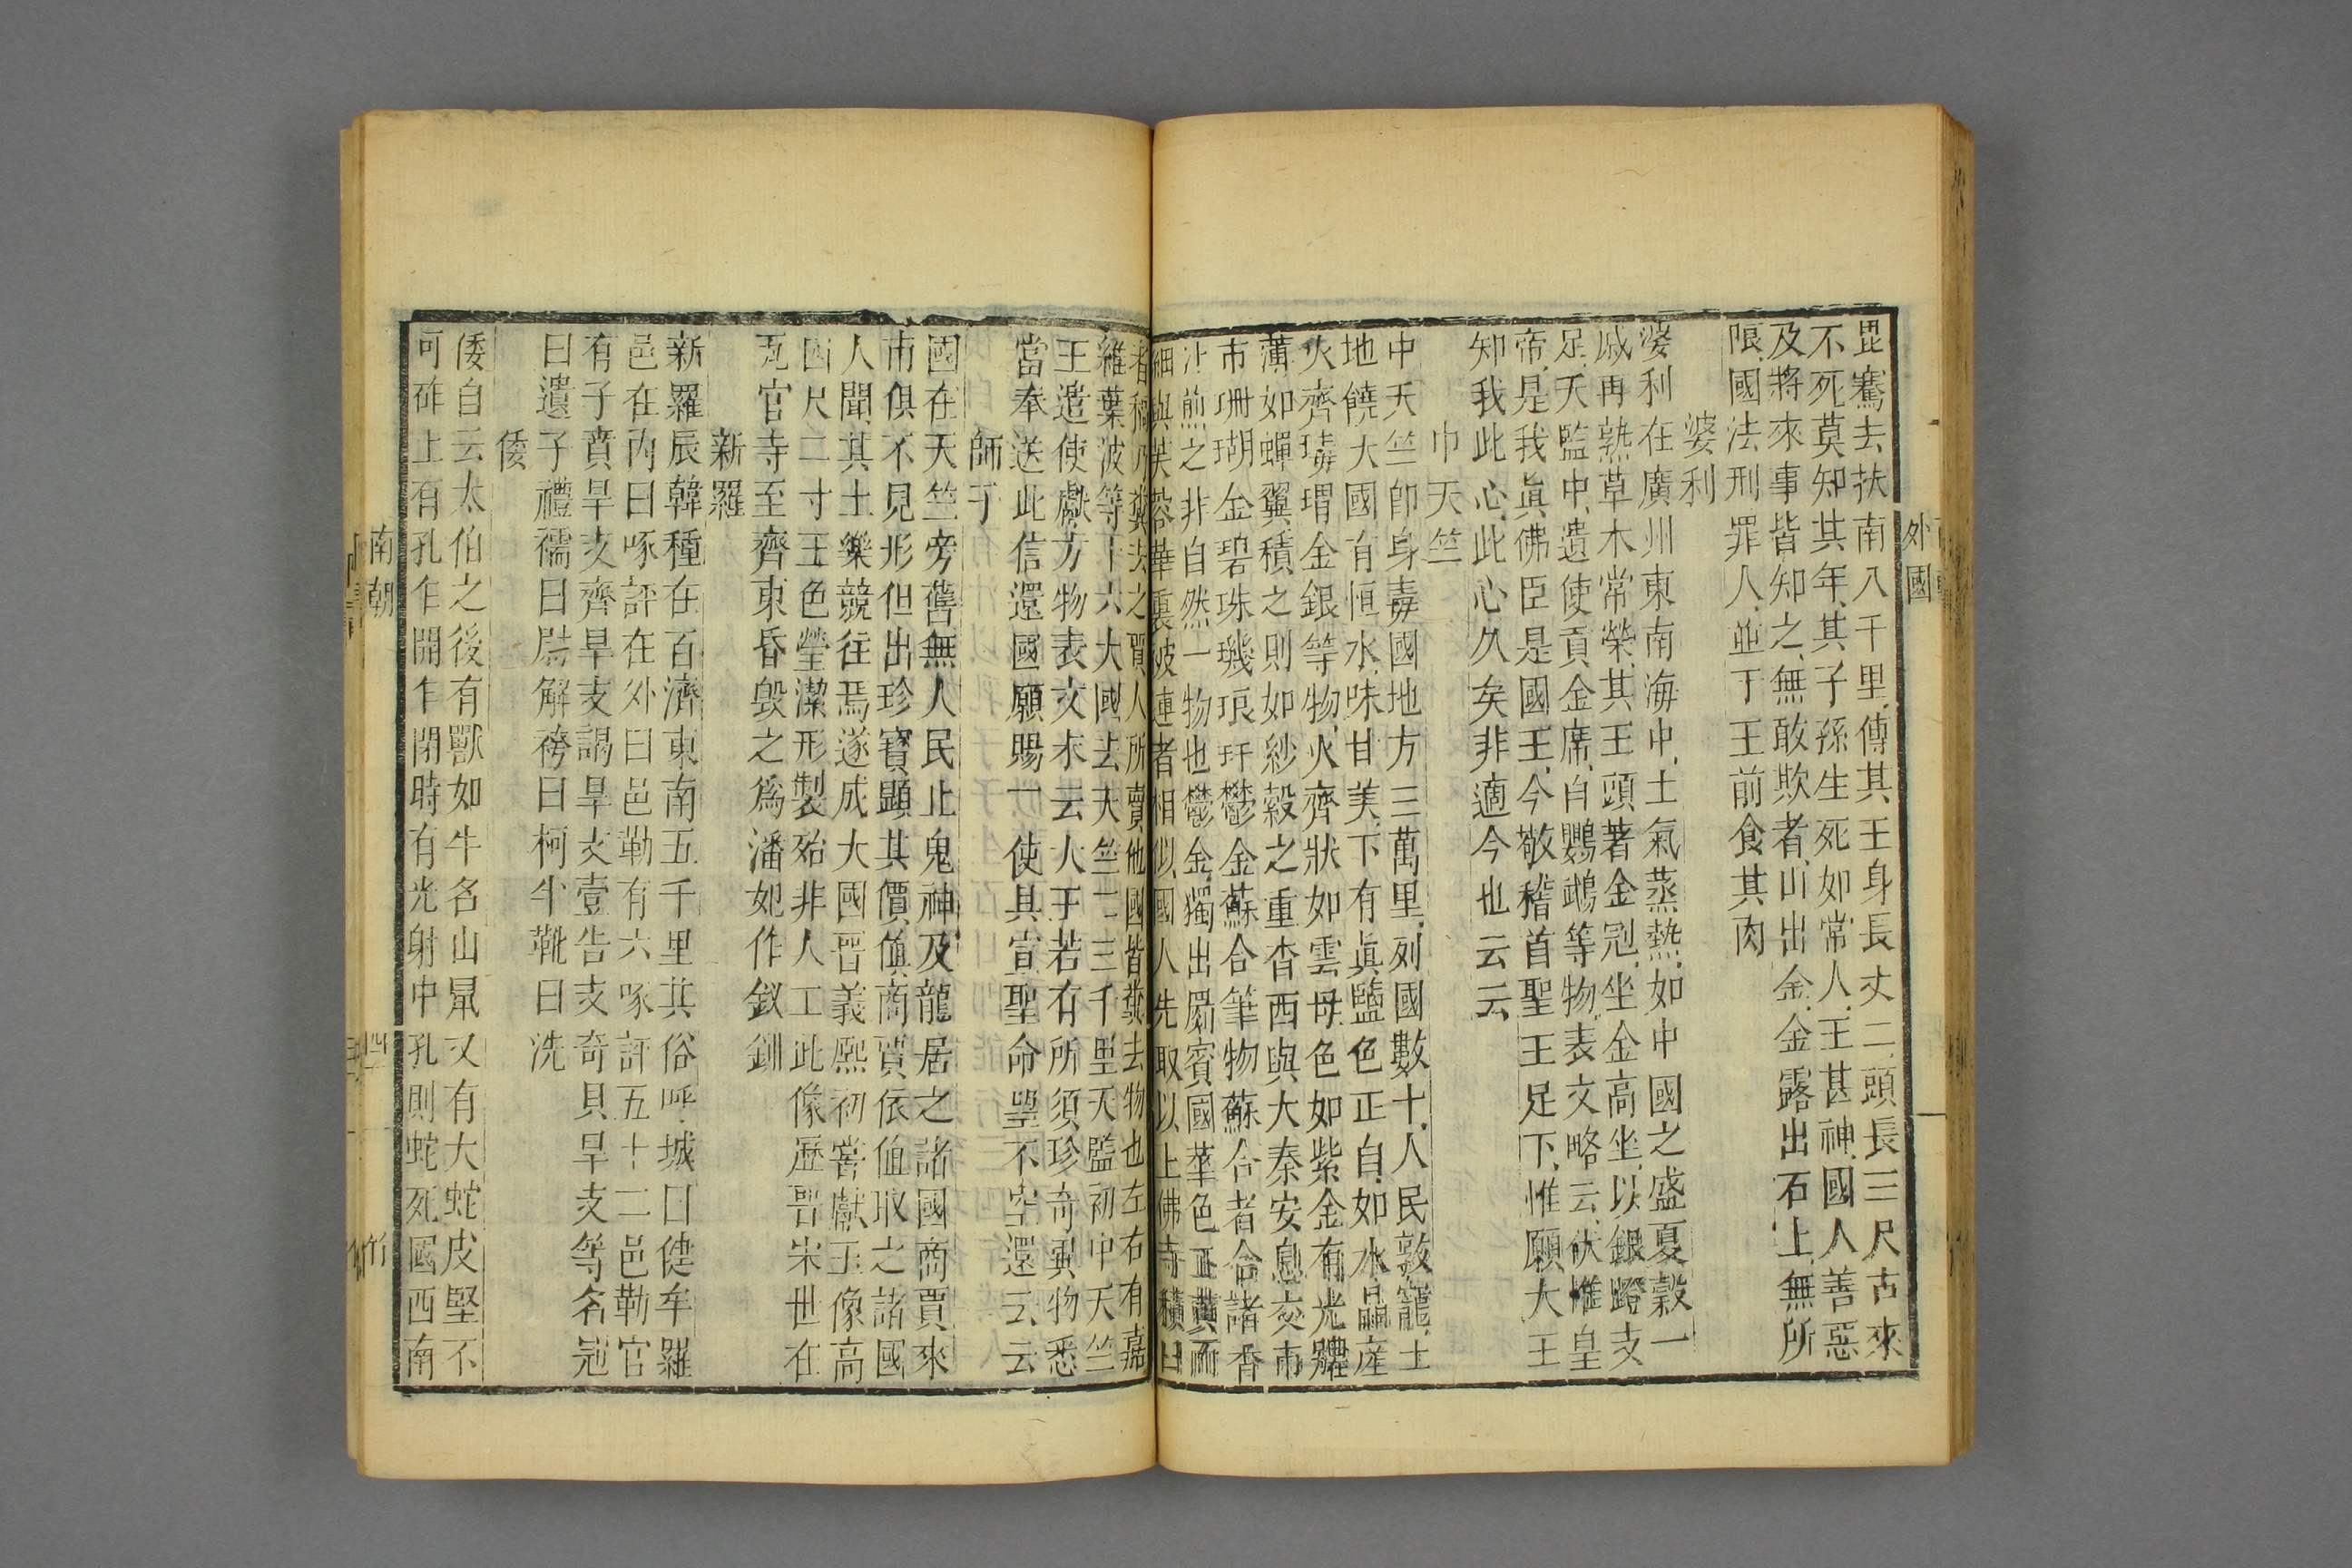 外國
毘騫去扶南八千里傳其王身長丈二頭長三尺古來
不死莫知其年其子孫生死如常人王甚神國人善惡
及將來事皆知之無敢欺者山出金金露出石上無所
限國法刑罪人並于王前食其肉
婆利
婆利在廣州東南海中土氣蒸熱如中國之盛夏穀一
歲再熟草木常榮其王頭著金冠坐金高坐以銀蹬支
足天監中遺使貢金席白鸚鵡等物表文略云伏惟皇
帝是我眞佛臣是國王今敬稽首聖王足下惟願大王
知我此心此心久矣非適今也云云
中天竺
中天竺卽身毒國地方三萬里列國數十人民敦龐土
地饒大國有恒水味甘美下有眞鹽色正白如水晶產
火齊瑇瑁金銀等物火齊狀如雲母色如紫金有光耀
薄如蟬翼積之則如紗縠之重沓西與大秦安息交市
市珊瑚金碧珠璣琅玕鬱金蘇合等物蘇合者合諸香
汁煎之非自然一物也鬱金獨出罽賓國華色正黃而
細與芙蓉華裏被連者相似國人先取以上佛寺積日
者稿乃糞去之賈人所賣他國皆糞去物也左右有嘉
維葉波等十六大國去天竺二三千里天監初中天竺
王遣使獻方物表文末云大王若有所須珍奇異物悉
當奉送此信還國願賜一使具宣聖命望不空還云云
師子
國在天竺旁舊無人民止鬼神及龍居之諸國商賈來
市俱不見形但出珍寶顯其價値商賈依値取之諸國
人聞其土樂競往焉遂成大國晉義熙初嘗獻玉像高
四尺二寸玉色瑩潔形製殆非人工此像歷晉宋世在
瓦官寺至齊東昏毁之爲潘妃作釵釧
新羅
新羅辰韓種在百濟東南五千里其俗呼城曰健牟羅
邑在內曰啄評在外曰邑勒有六啄評五十二邑勒官
有子賁旱支齊旱支謁旱支壹告支奇貝旱支等名冠
曰遺子禮襦曰尉解袴曰柯半靴曰洗
倭
倭自云太伯之後有獸如牛名山鼠又有大蛇皮堅不
可砟上有孔乍開乍閉時有光射中孔則蛇死國西南
南朝
四
竹